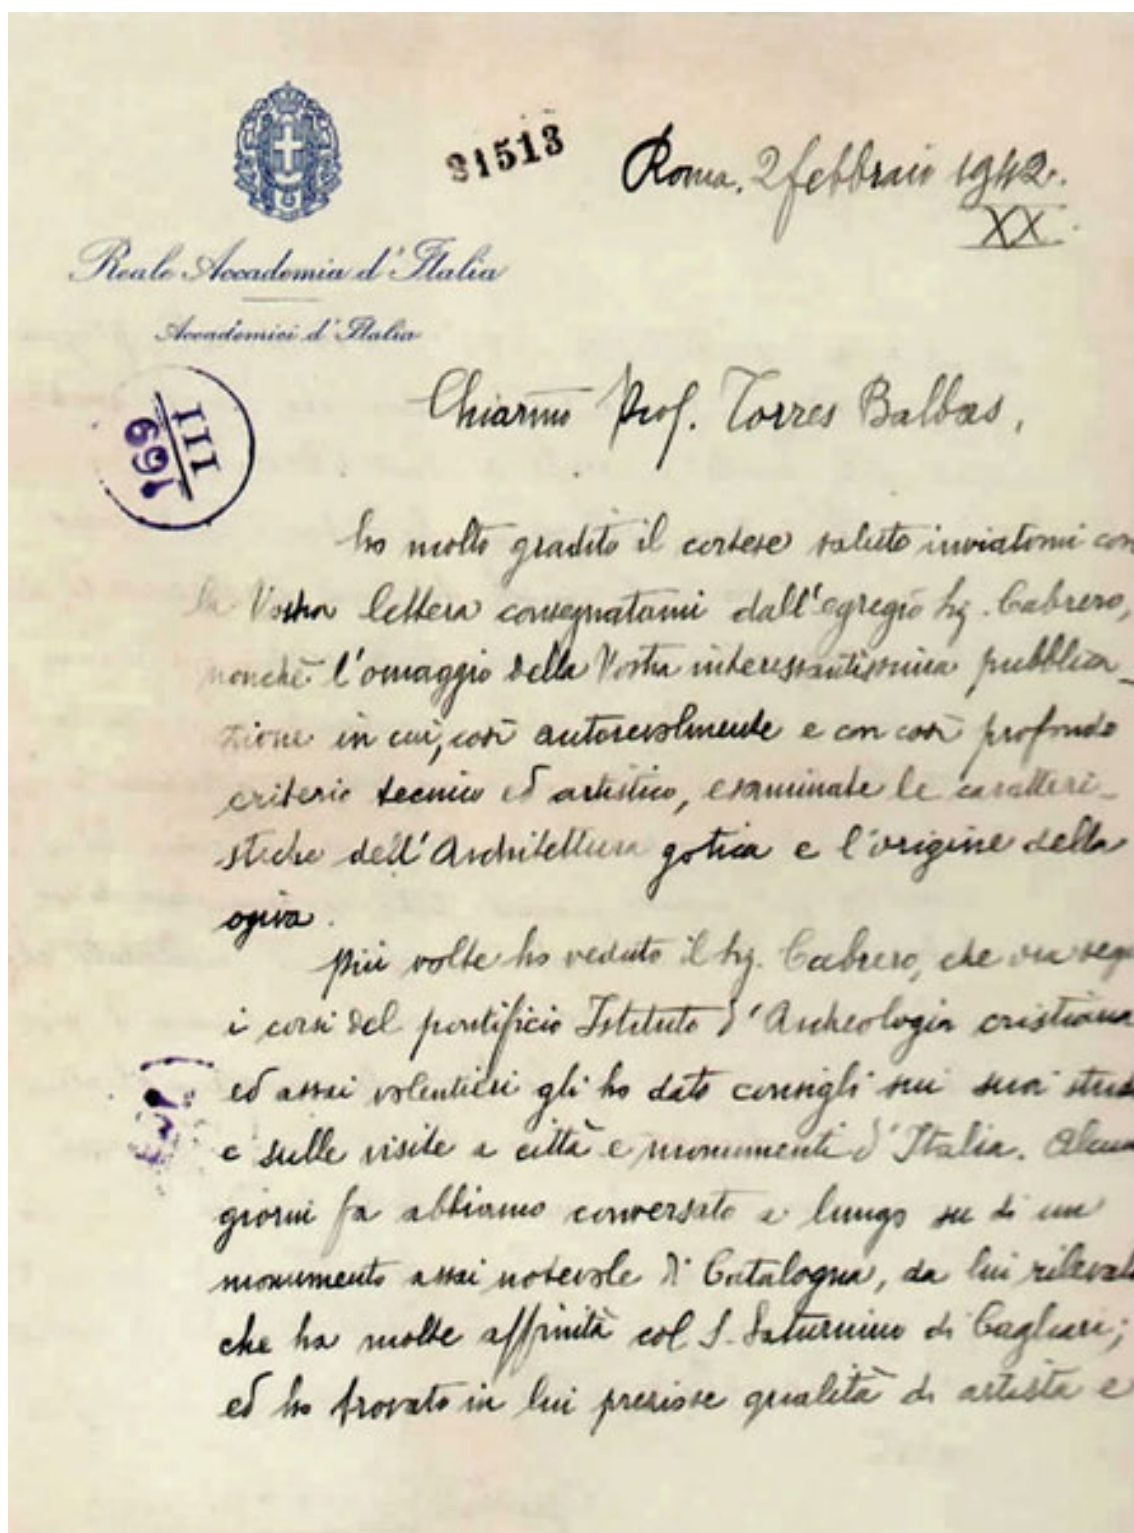 31513
Roma, 2 febbraio 1942.
XX.
Reale Accademia d'Italia
Accademici d'Italia
III
169
Chiarmo Prof. Torres Balbas,
ho molto gradito il cortese saluto inviatomi con
la Vostra lettera consegnatami dall'egregio Sig. Cabrero,
nonchè l'omaggio della Vostra interessantissima pubblica-
zione in cui, così autorevolmente e con così profondo
criterio tecnico ed artistico, esaminate le caratteri-
stiche dell'Architettura gotica e l'origine della
ogiva.
Più volte ho veduto il Sig. Cabrero, che ora
i corsi del pontificio Istituto d'Archeologia cristiana
ed assai volentieri gli ho dato consigli sui suoi
e sulle visite a città e monumenti d'Italia.
giorni fa abbiamo conversato a lungo su di un
monumento assai notevole di Catalogna, da lui
che ha molte affinità col S. Saturnino di Cagliari;
ed ho trovato in lui preziose qualità di artista e